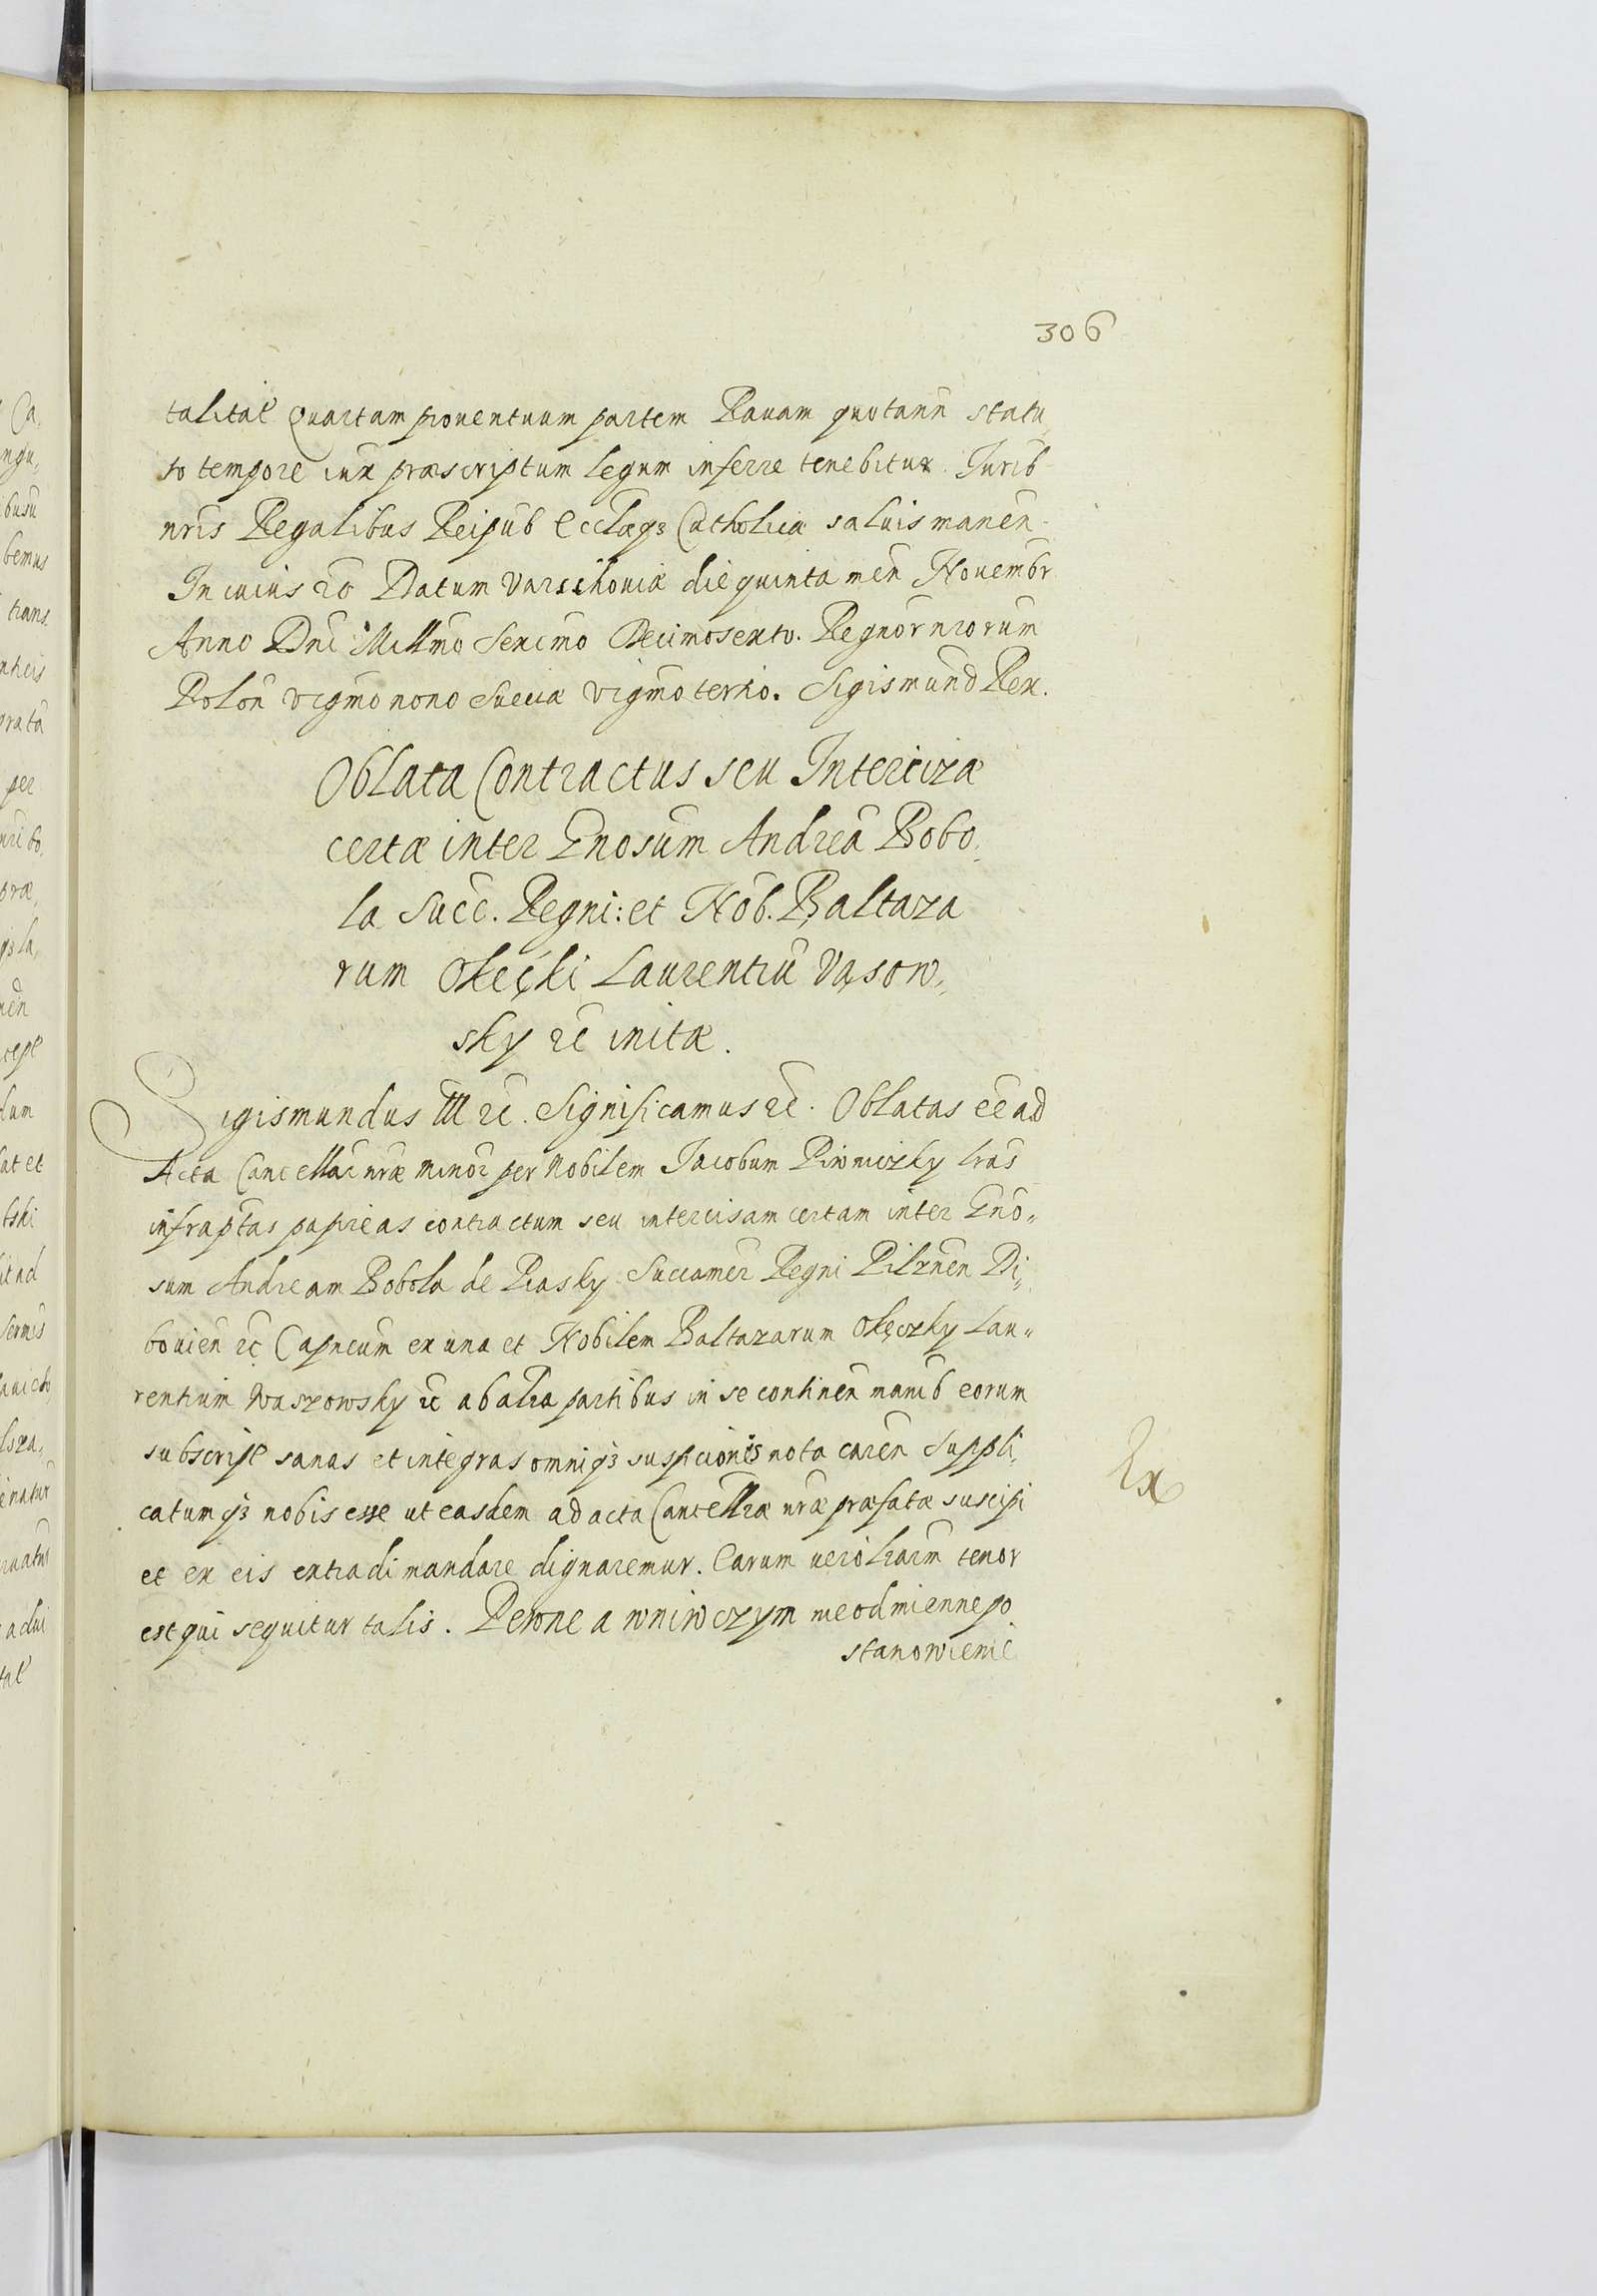 306
talital quartam proventuum partem Ravam quotann statu,
to tempore iux præscriptum legum inferre tenebitur. Jurib
nris Regalibus Reipub Ecclæqȝ Catholica saluis manen-
In cuius rō Datum Varschoviæ die quinta men Novembr
Anno Dni Millmo Sexcmo Decimosexto. Regnor nrorum
Polon vigmo nono Sueciæ vigmo tertio. Sigismund Rex.
Oblata Contractus seu Intercizæ
certæ inter Gnosum Andreā Bobo,
la Succ. Regni: et Nob. Baltaza
rum Okęcki Laurentiū Vąsow,
sky rc initæ.
Sigismundus III rc. Significamus rc. Oblatas eē ad
Acta Cancellar nræ minor per Nobilem Jacobum Piwniczky lras
infraptas papireas contractum seu intercisam certam inter Gno„
sum Andream Bobola de Piasky Succamer Regni Pilznen Di„
bovien rc Capneum ex una et Nobilem Baltazarum Okęczky Lau„
rentium Waszowsky rc ab alia partibus in se continen manib eorum
subscript sanas et integras omniqȝ suspicionis nota caren Suppli,
catumqȝ nobis esse ut easdem ad acta Cancellriæ nræ præfatæ suscipi
et ex eis extradi mandare dignaremur. Earum vero lrarm tenor
est qui sequitur talis. Pewne a wniwczym nieodmienne po
stanowienie